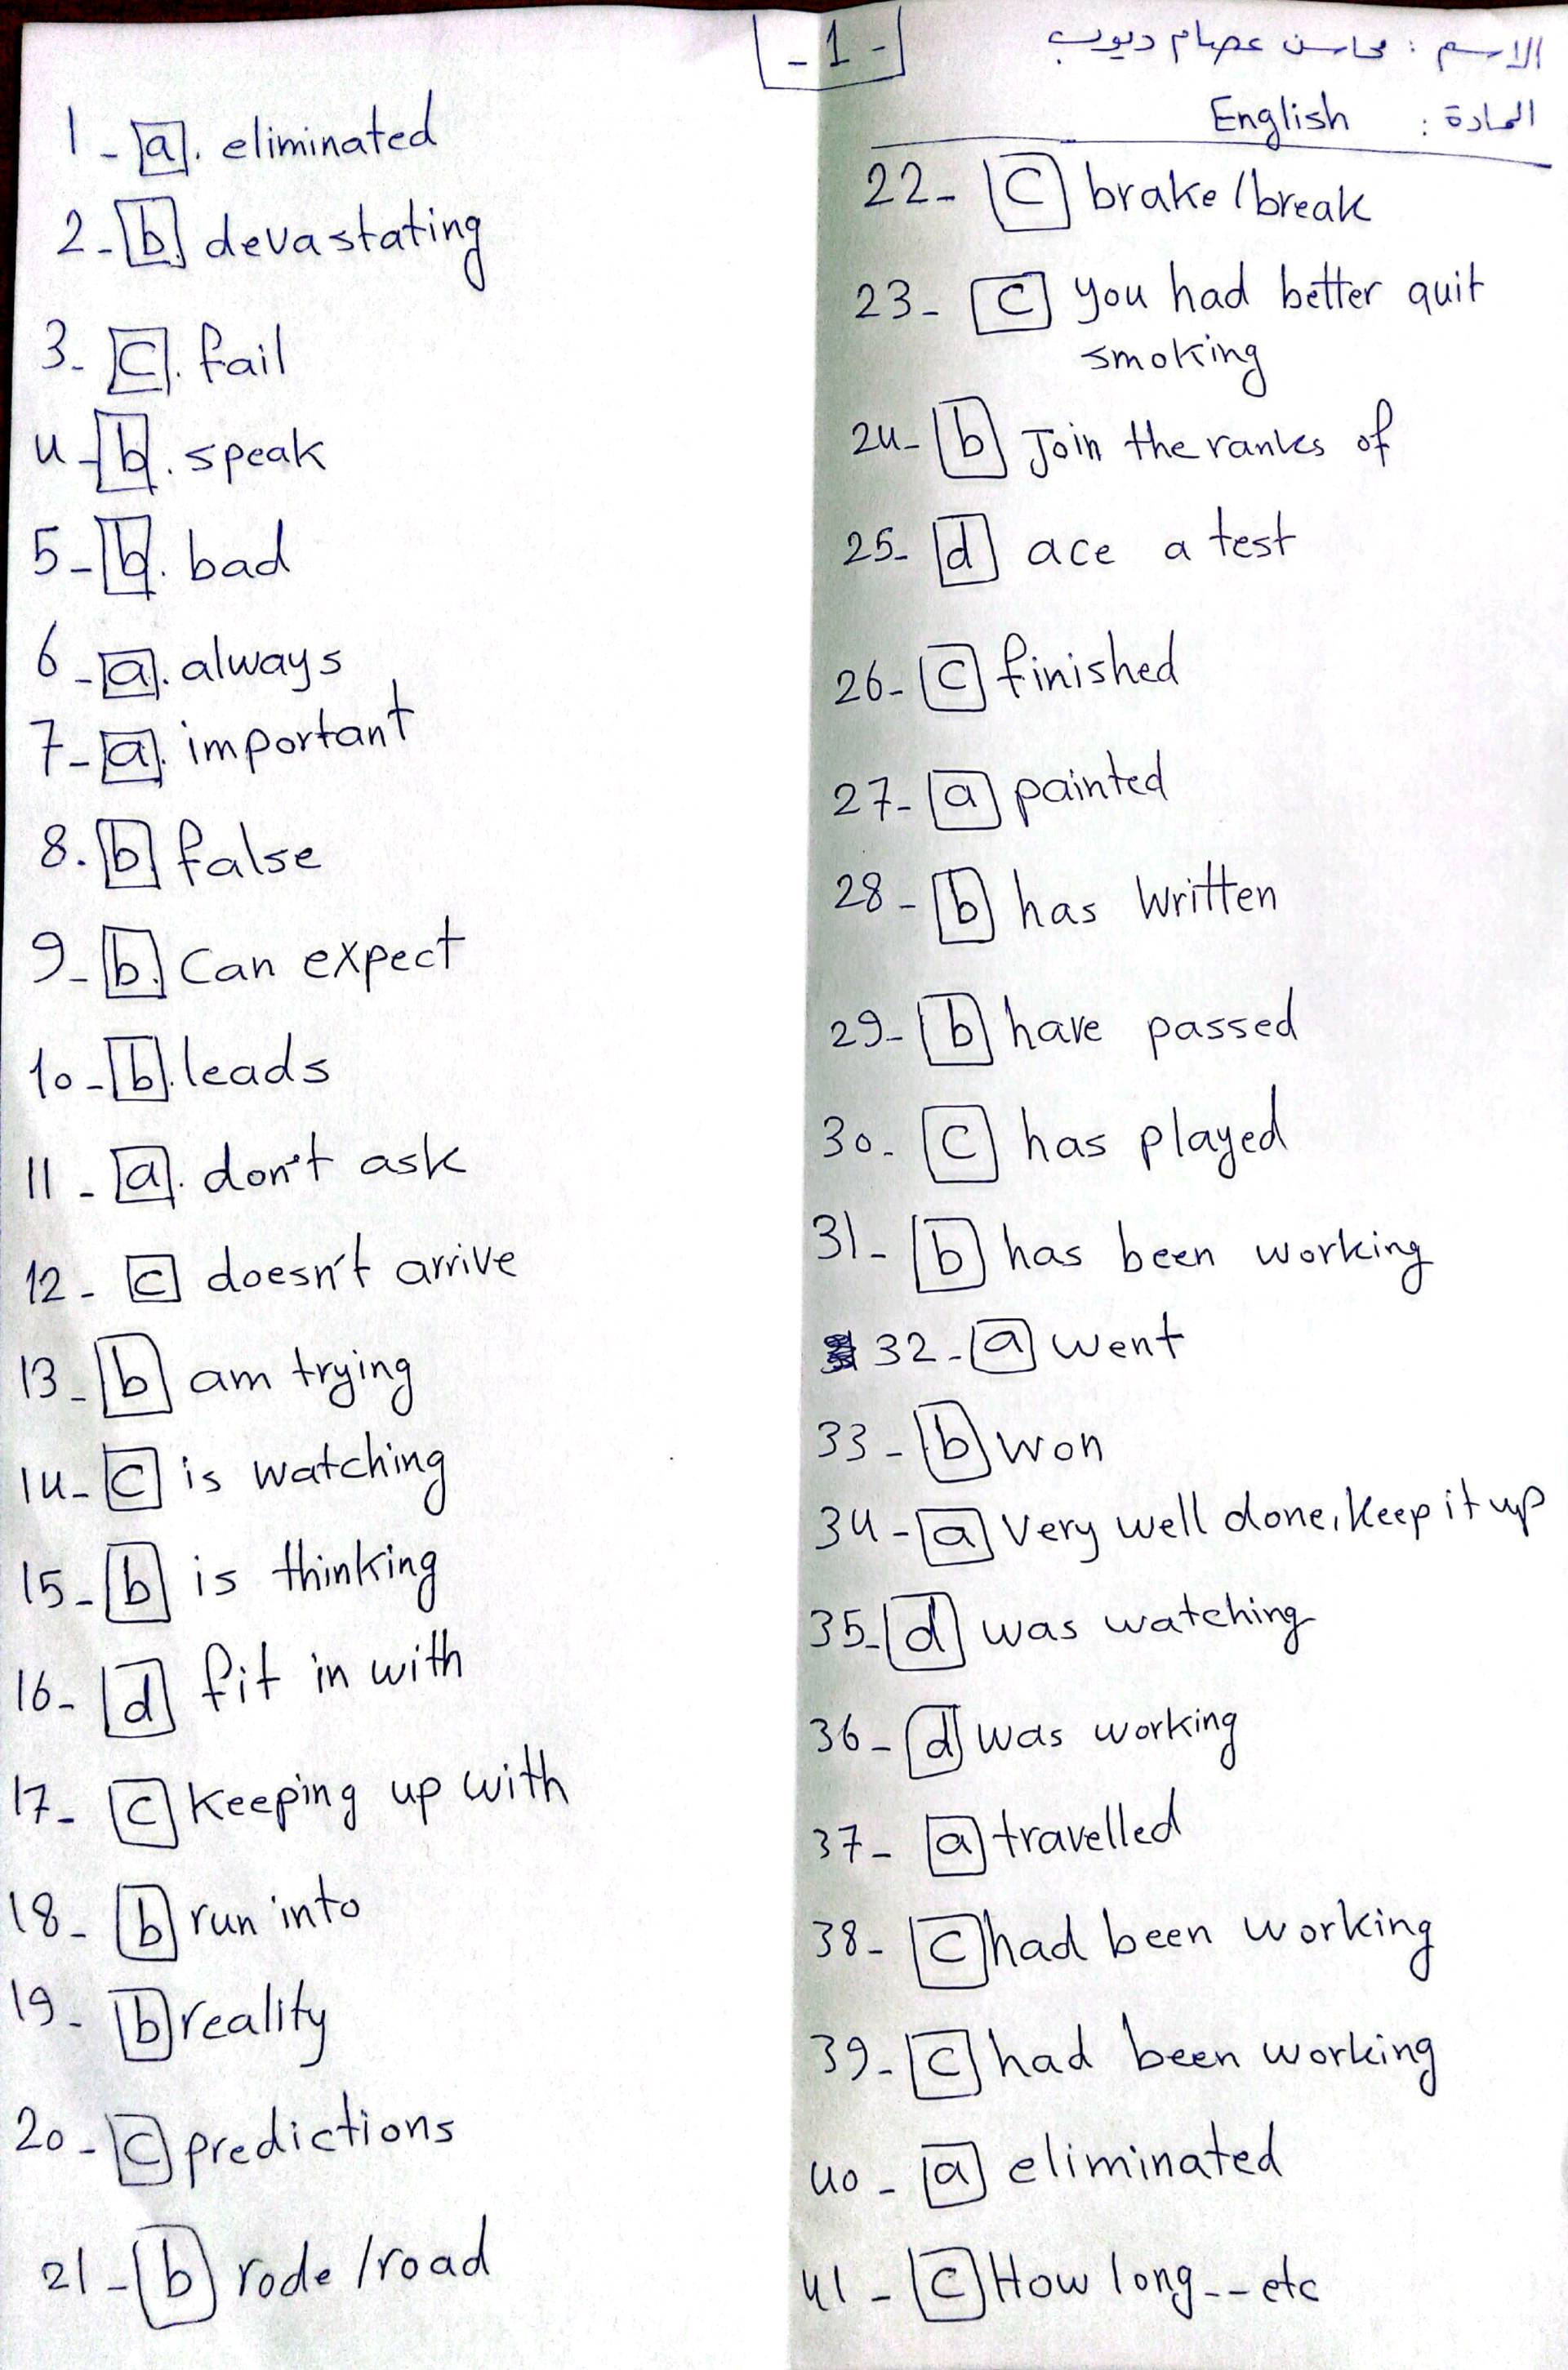 - 1 -
الاسم : محاسن عصام ديوب
المادة : English
1 - a. eliminated
2 - b. devastating
3 - c. fail
4 - b. speak
5 - b. bad
6 - a. always
7 - a. important
8. b false
9 - b. Can expect
10 - b. leads
11 - a. don't ask
12 - c doesn't arrive
13 - b am trying
14 - c is watching
15 - b is thinking
16 - d fit in with
17 - c keeping up with
18 - b run into
19 - b reality
20 - c predictions
21 - b rode / road
22 - c brake / break
23 - c you had better quit
smoking
24 - b Join the ranks of
25 - d ace a test
26 - c finished
27 - a painted
28 - b has written
29 - b have passed
30. c has played
31 - b has been working
32 - a went
33 - b won
34 - a Very well done, keep it up
35 - d was watching
36 - d was working
37 - a travelled
38 - c had been working
39 - c had been working
40 - a eliminated
41 - c How long -- etc